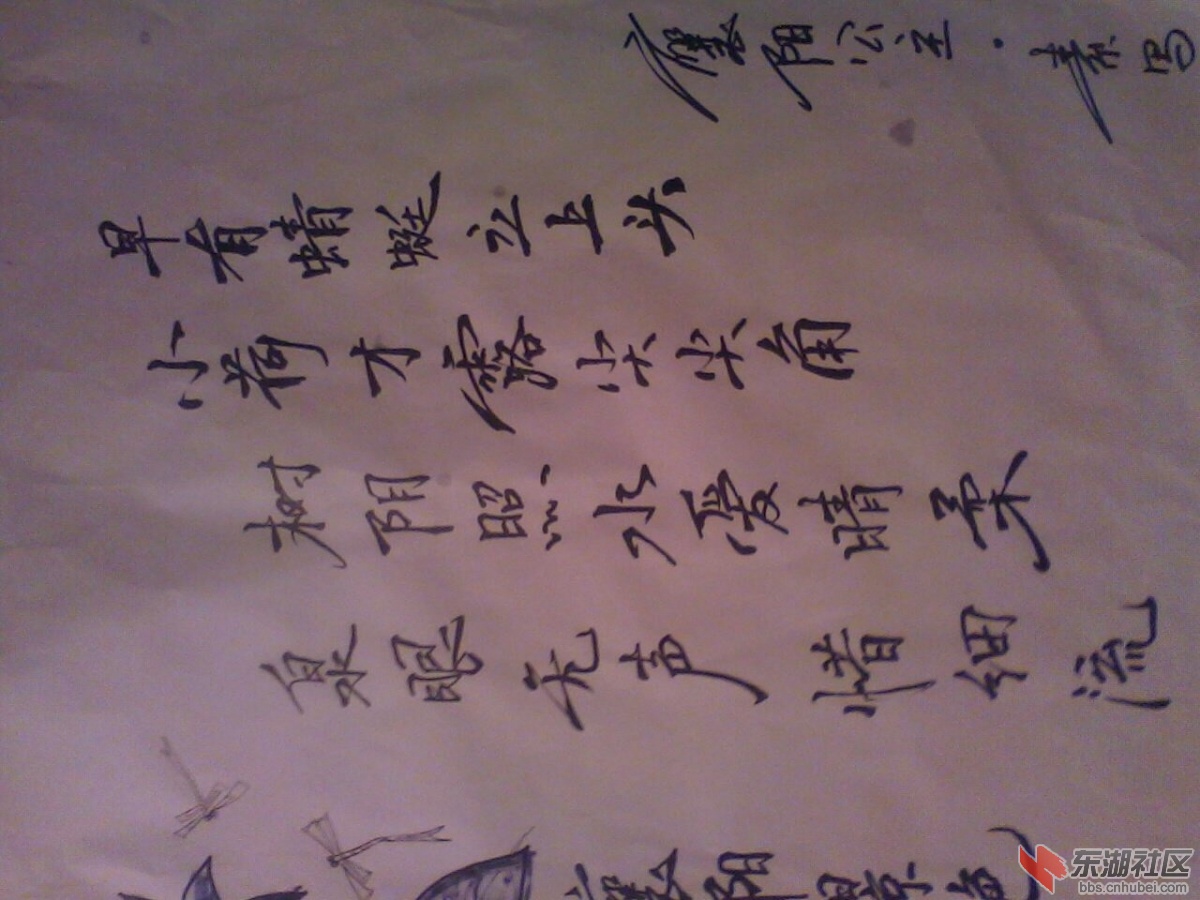 襄阳
泉眼无声惜细流
树阴照水爱晴柔
小荷才露尖尖角
早有蜻蜓立上头
襄阳公主·素写
东湖社区
bbs.cnhubei.com